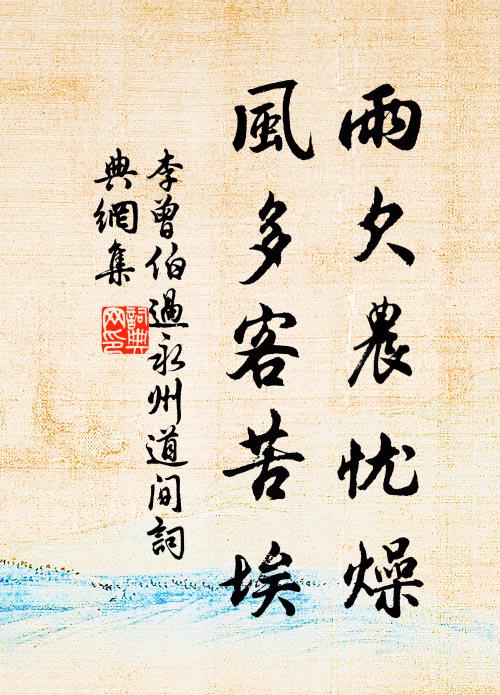 雨欠農忧燥
風多客苦埃
李曾伯過永州道间詞
典網集
詞典
网印